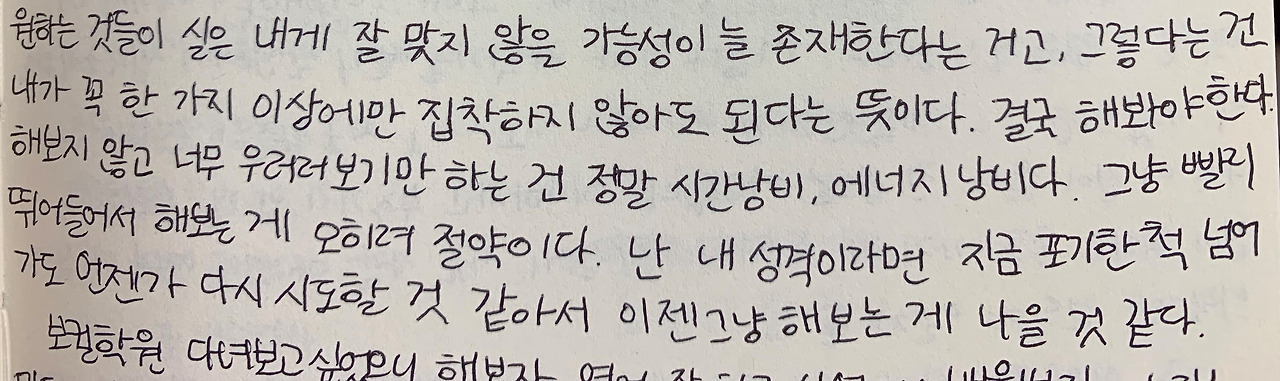 원하는 것들이 실은 내게 잘 맞지 않을 가능성이 늘 존재한다는 거고, 그렇다는 건
내가 꼭 한 가지 이상에만 집착하지 않아도 된다는 뜻이다. 결국 해봐야한다.
해보지 않고 너무 우러러보기만 하는 건 정말 시간낭비, 에너지낭비다. 그냥 빨리
뛰어들어서 해보는 게 오히려 절약이다. 난 내 성격이라면 지금 포기한 척 넘어
가도 언젠가 다시 시도할 것 같아서 이젠그냥 해보는 게 나을 것 같다.
보컬학원 다녀보고싶었으니 해보자